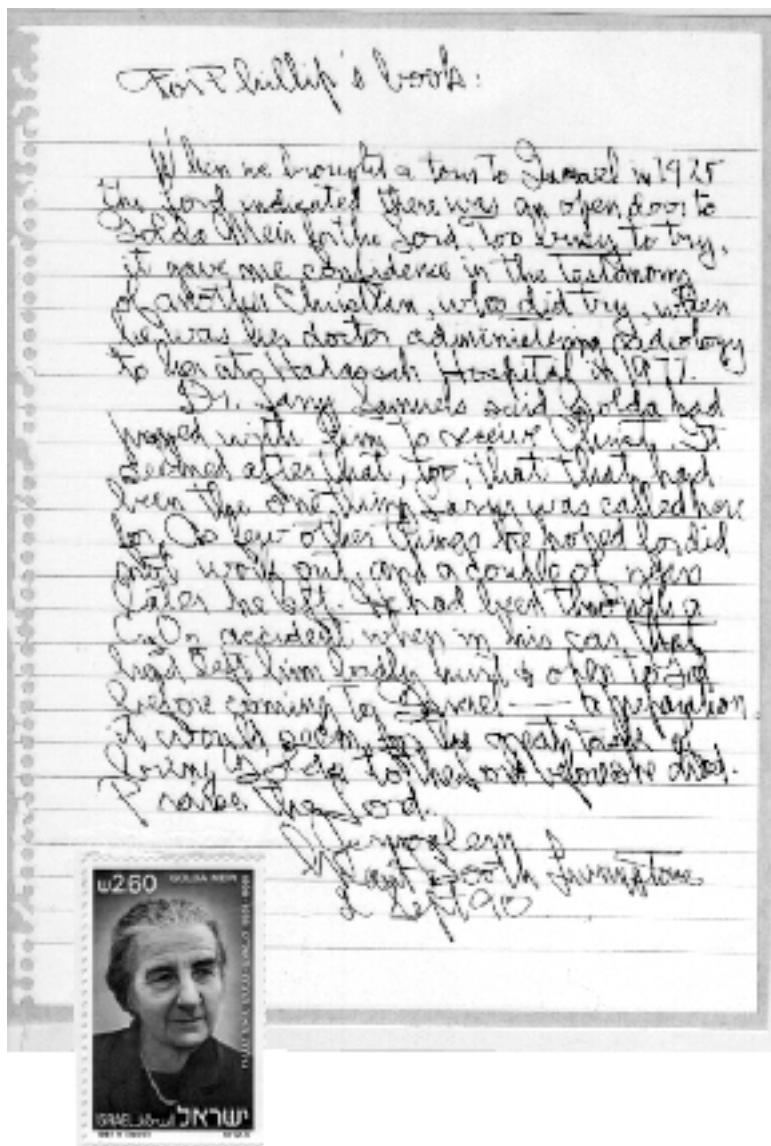 For Phillip's book:
When we brought a tour to Israel in 1975
the Lord indicated there was an open door to
Golda Meir for the Lord. Too busy to try,
it gave me confidence in the testimony
of another Christian, who did try, when
he was her doctor administering radiology
to her at Hadassah Hospital in 1977.
Dr. Larry Samuels said Golda had
prayed with him to receive Christ. It
seemed after that, too, that that had
been the one thing Larry was called here
for. As few other things he hoped for did
not work out, and a couple of years
later he left. He had been through a
accident when in his car that
had left him badly hurt & open to God
before coming to Israel — a preparation
it would seem, for his great task of
loving Golda to the before she died.
Praise the Lord.
Jerusalem
Booth Livingstone
2 Sept 90
₪2.60 GOLDA MEIR
ISRAEL ישראל